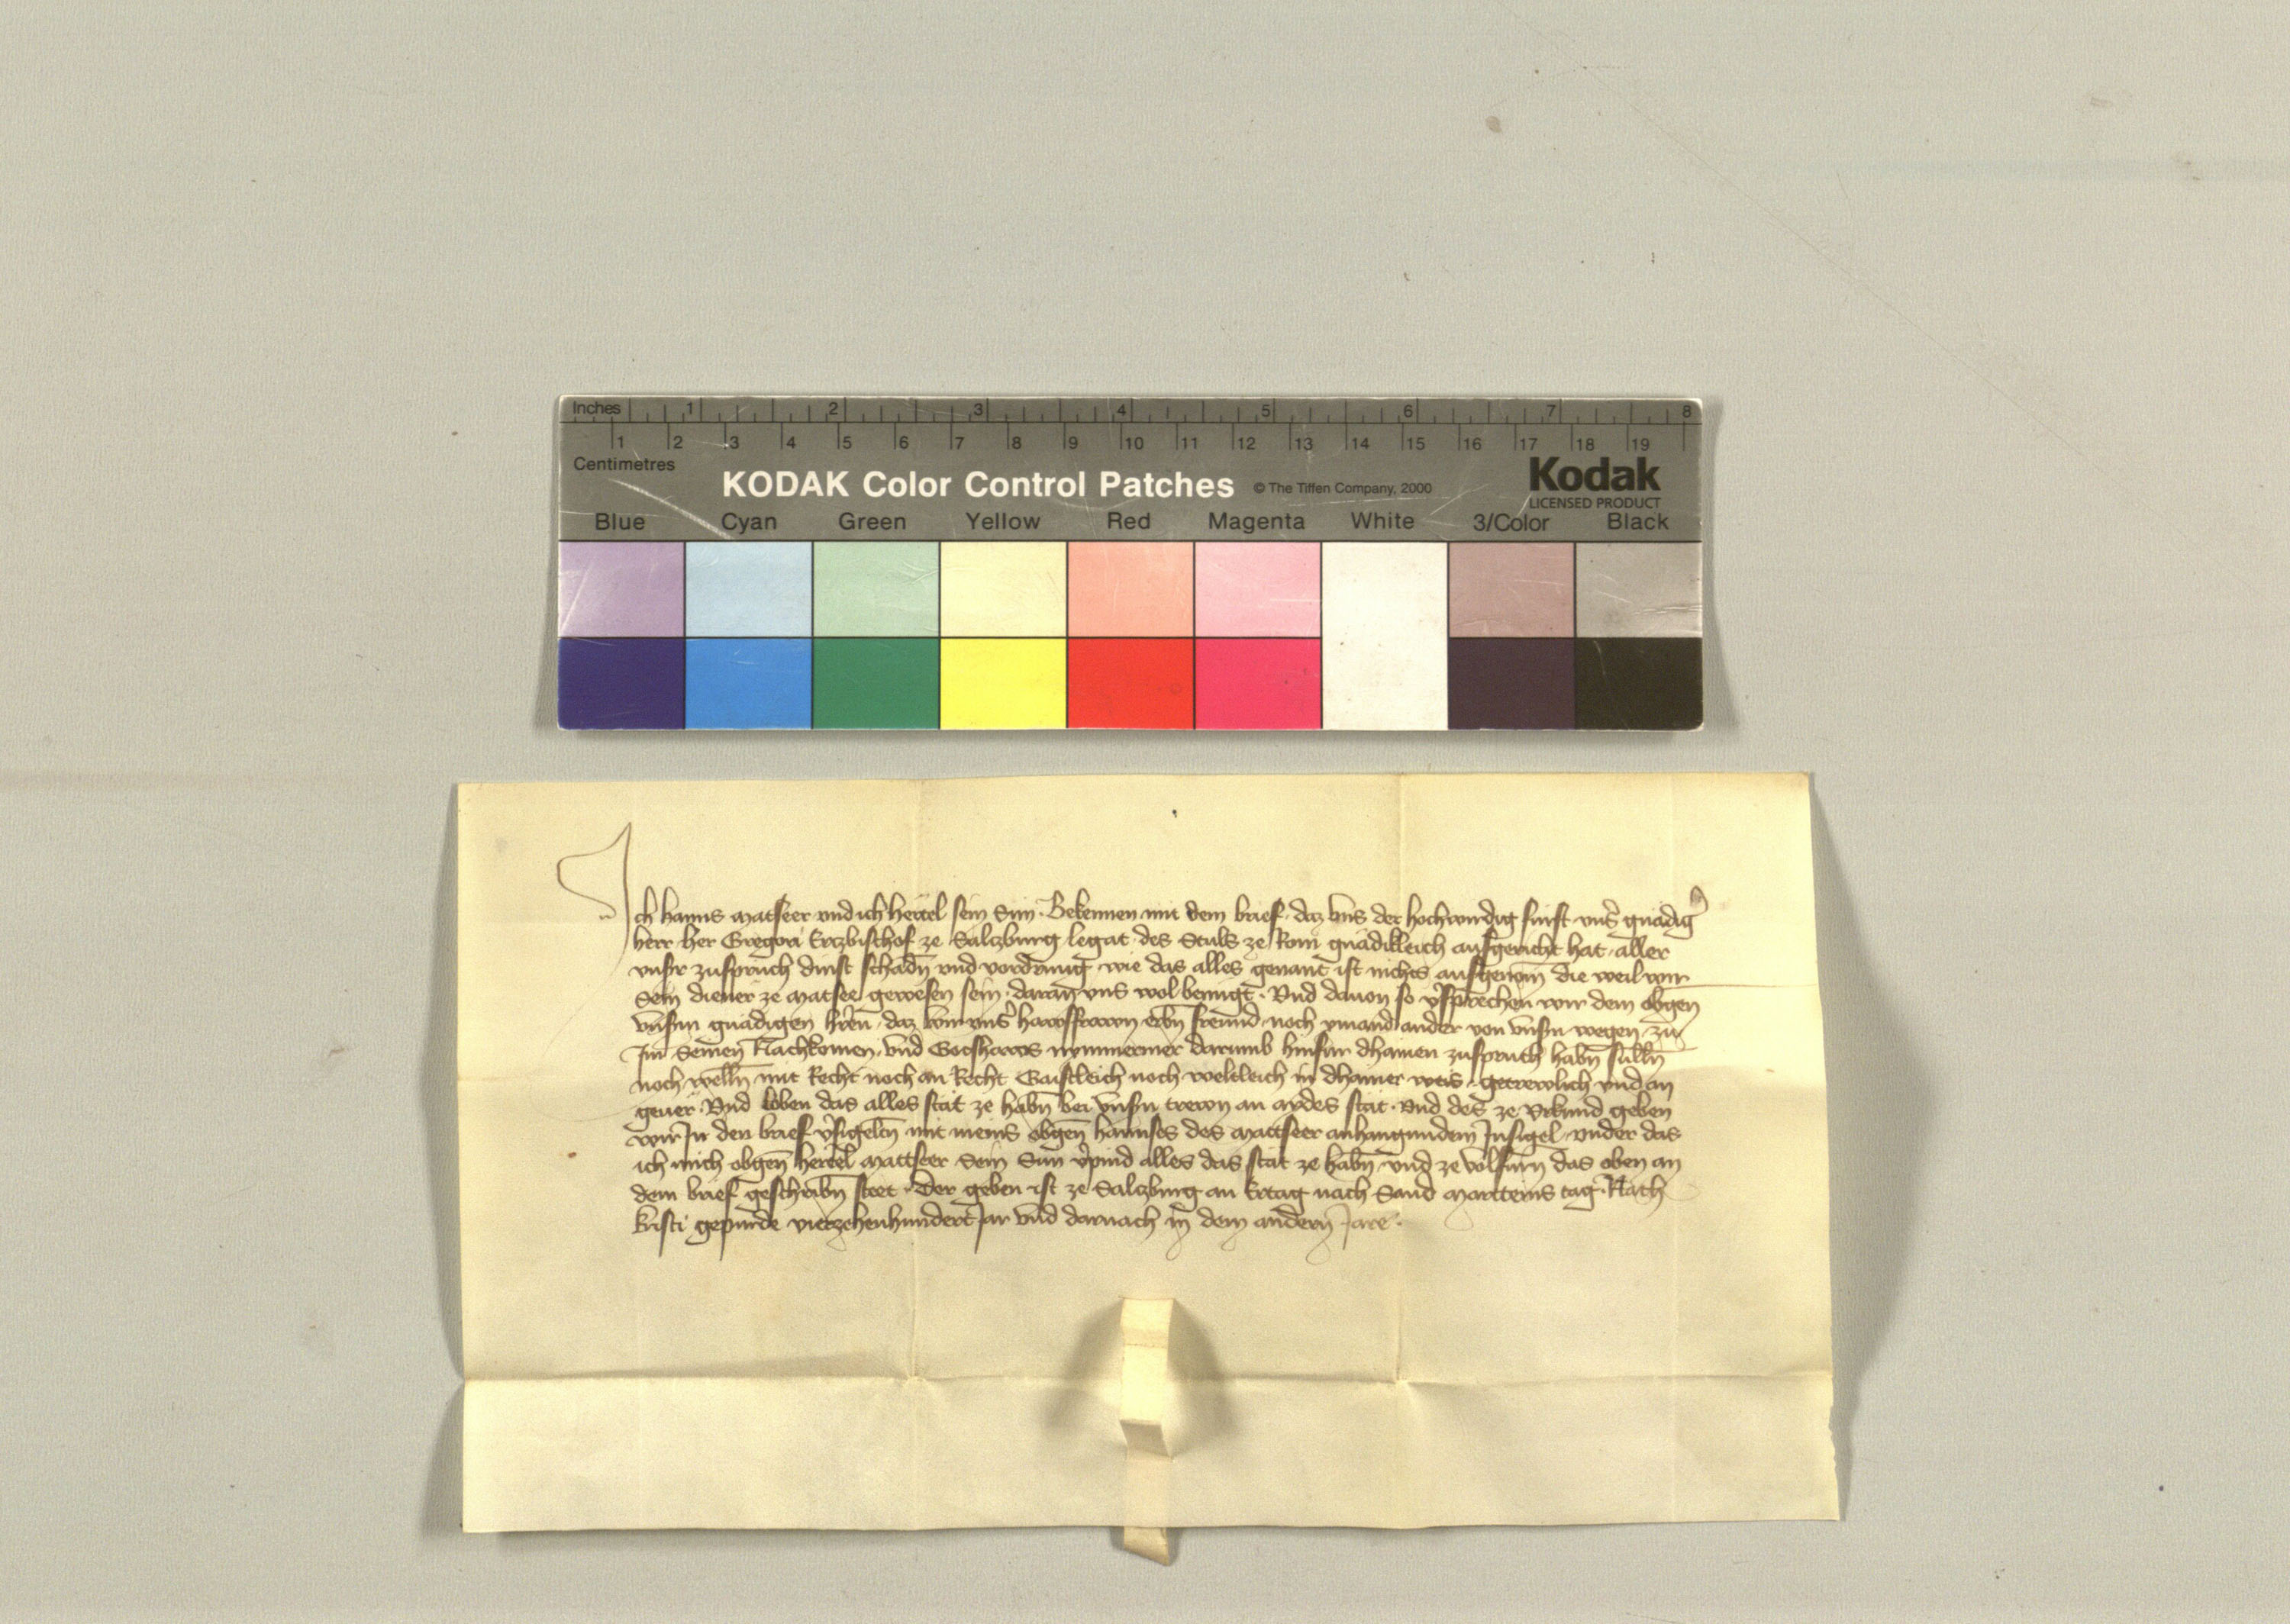 Inches 1 2 3 4 5 6 7 8
1 2 3 4 5 6 7 8 9 10 11 12 13 14 15 16 17 18 19
Centimetres
KODAK Color Control Patches © The Tiffen Company, 2000 Kodak
LICENSED PRODUCT
Blue Cyan Green Yellow Red Magenta White 3/Color Black
Ich hanns Matseer vnd ich hertel sein Sun. Bekennen mit dem brief. daz vns der hochwirdig fürst vnser gnädiger
herr her Gregori Erczbischof ze Salczburg legat des Stuls ze Rom gnädikleich ausgericht hat aller
vnsrr zuspruch dinst schadn̄ vnd vordrung wie das alles genant ist nichts ausgenom̄ die weil wir
Sein diener ze Matsee gewesen sein. daran vns wol benügt. Vnd dauon so v̉sprechen wir dem obgen
vnsṁ gnädigen hr̄en daz wir vnsˀ hawsfrawn erbn̄ frewnd noch ymand ander von vnsṁ wegen zu
Im Seinen Nachkomen vnd Gotshaws nymmermer darumb hinfür dhainen zuspruch habn̄ sülln̄
noch welln̄ mit Recht noch an Recht Gaistleich noch weltleich in dhainer weis getrewlich vnd an
geuer. Vnd loben das alles stät ze habn̄ bei vnsṁ trewn an aydes stat. Vnd des ze Vrkund geben
wir In den brief v̉sigeltn̄ mit meins obgen̄ hannses des Mattseer anhangundem Insigel vnder das
ich mich obgen̄ hertel Mattseer Sein Sun v̉pind alles das stät ze habn̄ vnd ze volfürn̄ das oben an
dem brief geschribn̄ steet. Der geben ist ze Salczburg an Ertag nach Sand Marteins tag. Nach
kristi gepurde vierzehenhundert Jar vnd darnach in dem andern Jare.